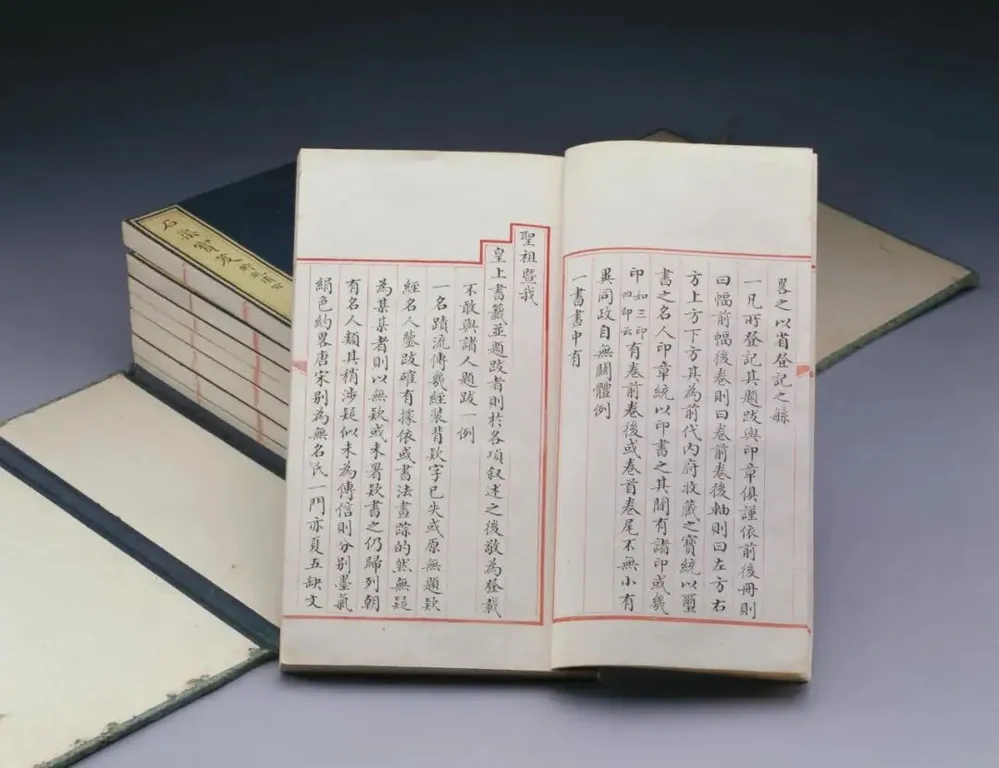 畧之以省登記之繇
一凡所登記其題跋與印章俱謹依前後冊則
曰幅前幅後卷則曰卷前卷後軸則曰左方右
方上方下方其為前代內府收藏之寶統以璽
書之名人印章統以印書之其間有諸印或幾
印如三印四印云有卷前卷後或卷首卷尾不無小有
異同政自無關體例
一書書中有
聖祖暨我
皇上書籤並題跋者則於各項叙述之後敬為登載
不敢與諸人題跋一例
一名蹟流傳幾經裝背欵字已失或原無題欵
經名人鑒跋確有據依或書法畫踪的然無疑
為某某者則以無欵或未署欵書之仍歸列朝
有名人類其稍涉疑似未為傳信則分別墨氣
絹色約畧唐宋别為無名氏一門亦夏五缺文
石渠寶笈